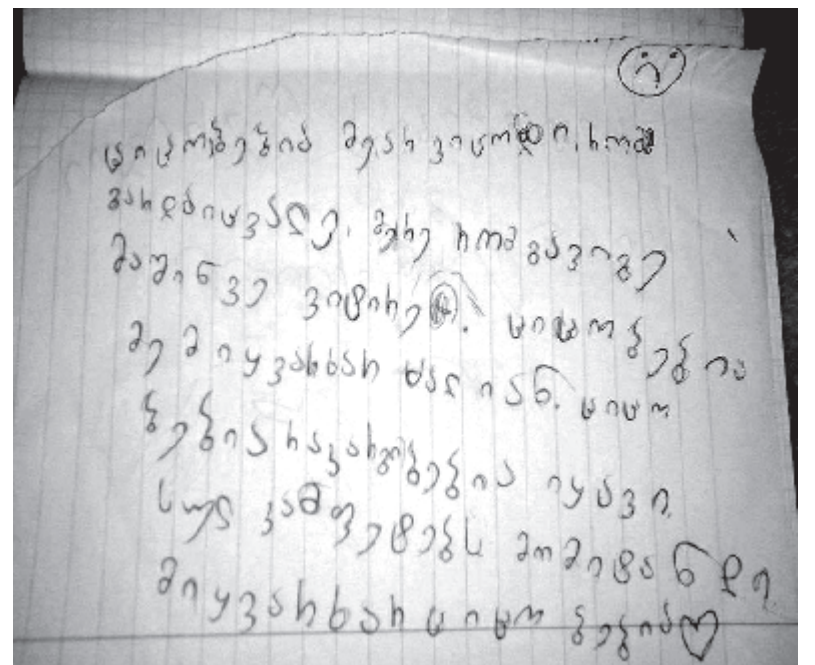 ციცობებია მე არ ვიცოდი, რომ
გარდაიცვალე, მერე რომ გავიგე
მაშინვე ვიტირე. ციცო ბებია
მე მიყვარხარ ძალიან. ციცო
ბებია რა კარგი ბებია იყავი
სულ კამფეტებს მომიტანდი
მიყვარხარ ციცო ბებია